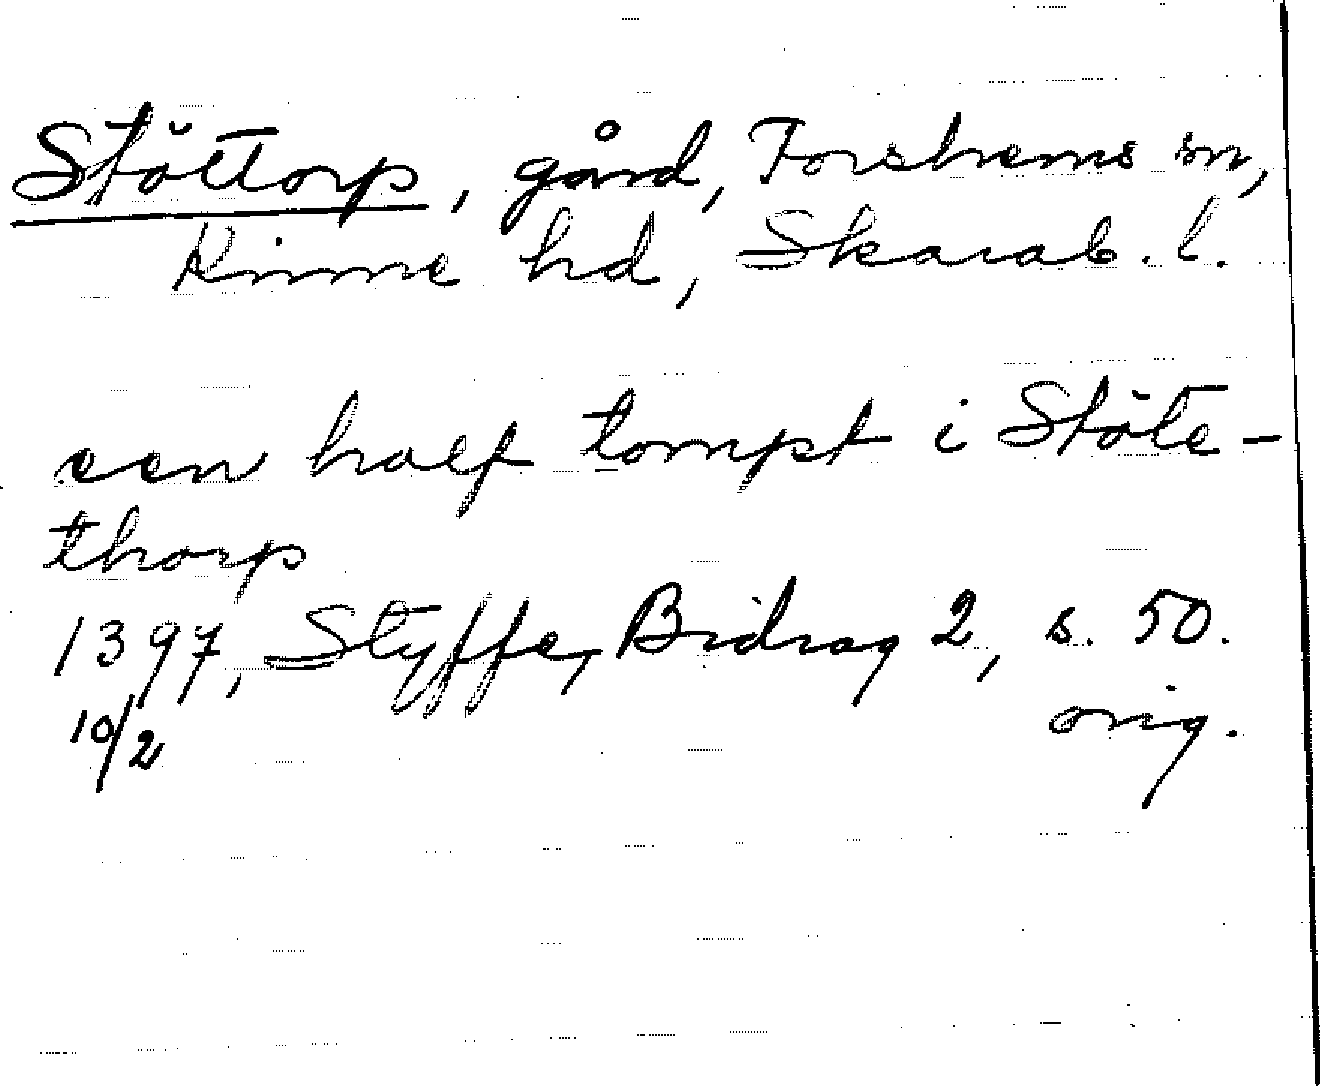 Stöttorp, gård, Forshems sn,
Kinne hd, Skarab. l.
een half tompt i Stöte-
thorp
1397, Styffe, Bidrag 2, s. 50.
10/2 orig.